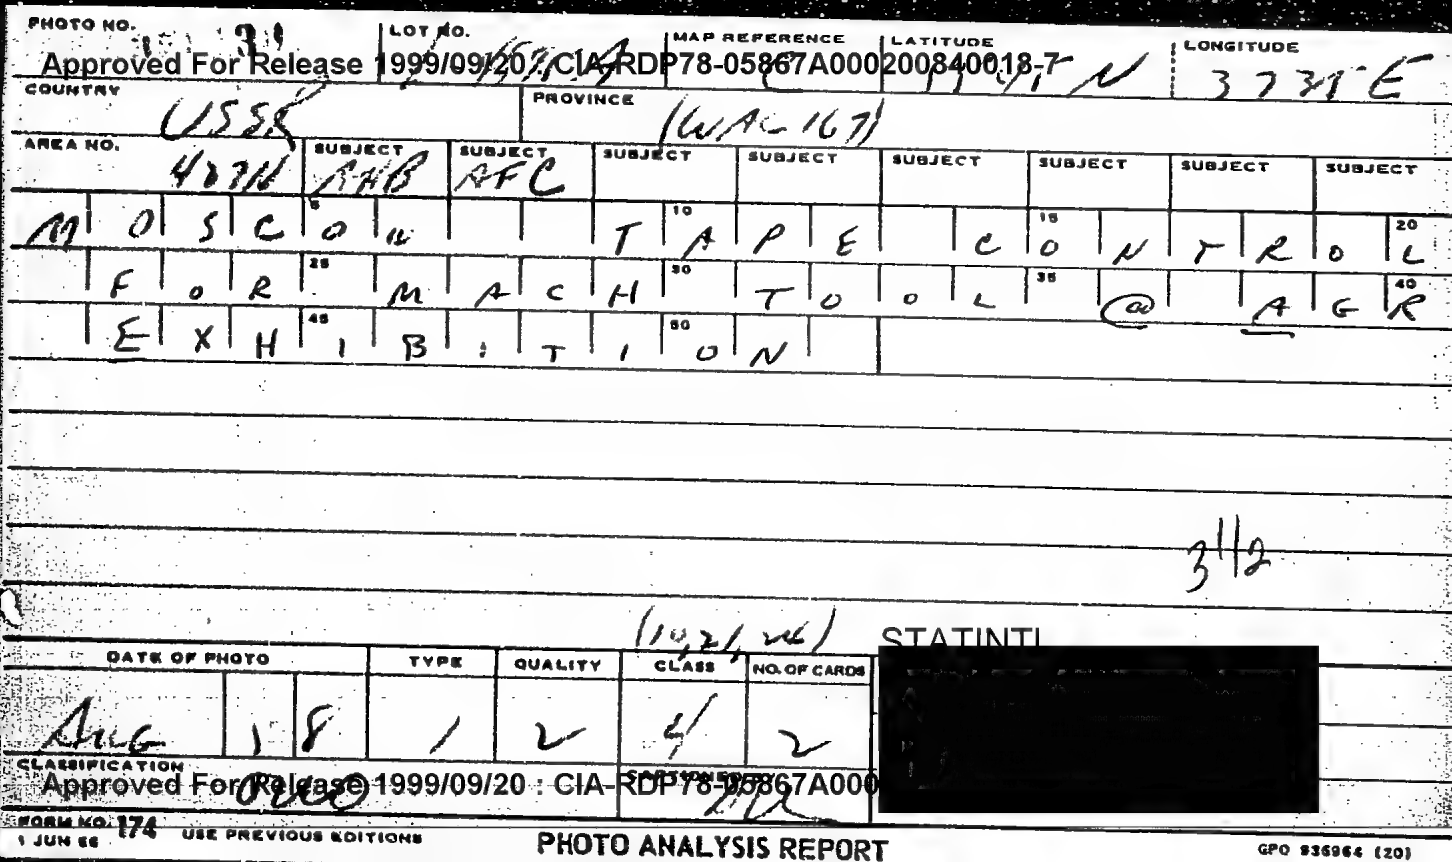 PHOTO NO. LOT NO. MAP REFERENCE LATITUDE LONGITUDE
Approved For Release 1999/09/20 : CIA-RDP78-05867A000200840018-7
N 3731 E
COUNTRY PROVINCE
USSR (WAC 167)
AREA NO. SUBJECT SUBJECT SUBJECT SUBJECT SUBJECT SUBJECT SUBJECT SUBJECT
AFC
5 10 15 20
MOSCOW TAPE CONTROL
25 30 35 40
FOR MACH TOOL @ AGR
45 50
EXHIBITION
3 1/2
STATINTL
DATE OF PHOTO TYPE QUALITY CLASS NO. OF CARDS
AUG 18 1 2 4 2
CLASSIFICATION
Approved For Release 1999/09/20 : CIA-RDP78-05867A000
FORM NO. 174
1 JUN 66 USE PREVIOUS EDITIONS PHOTO ANALYSIS REPORT GPO 936964 (20)